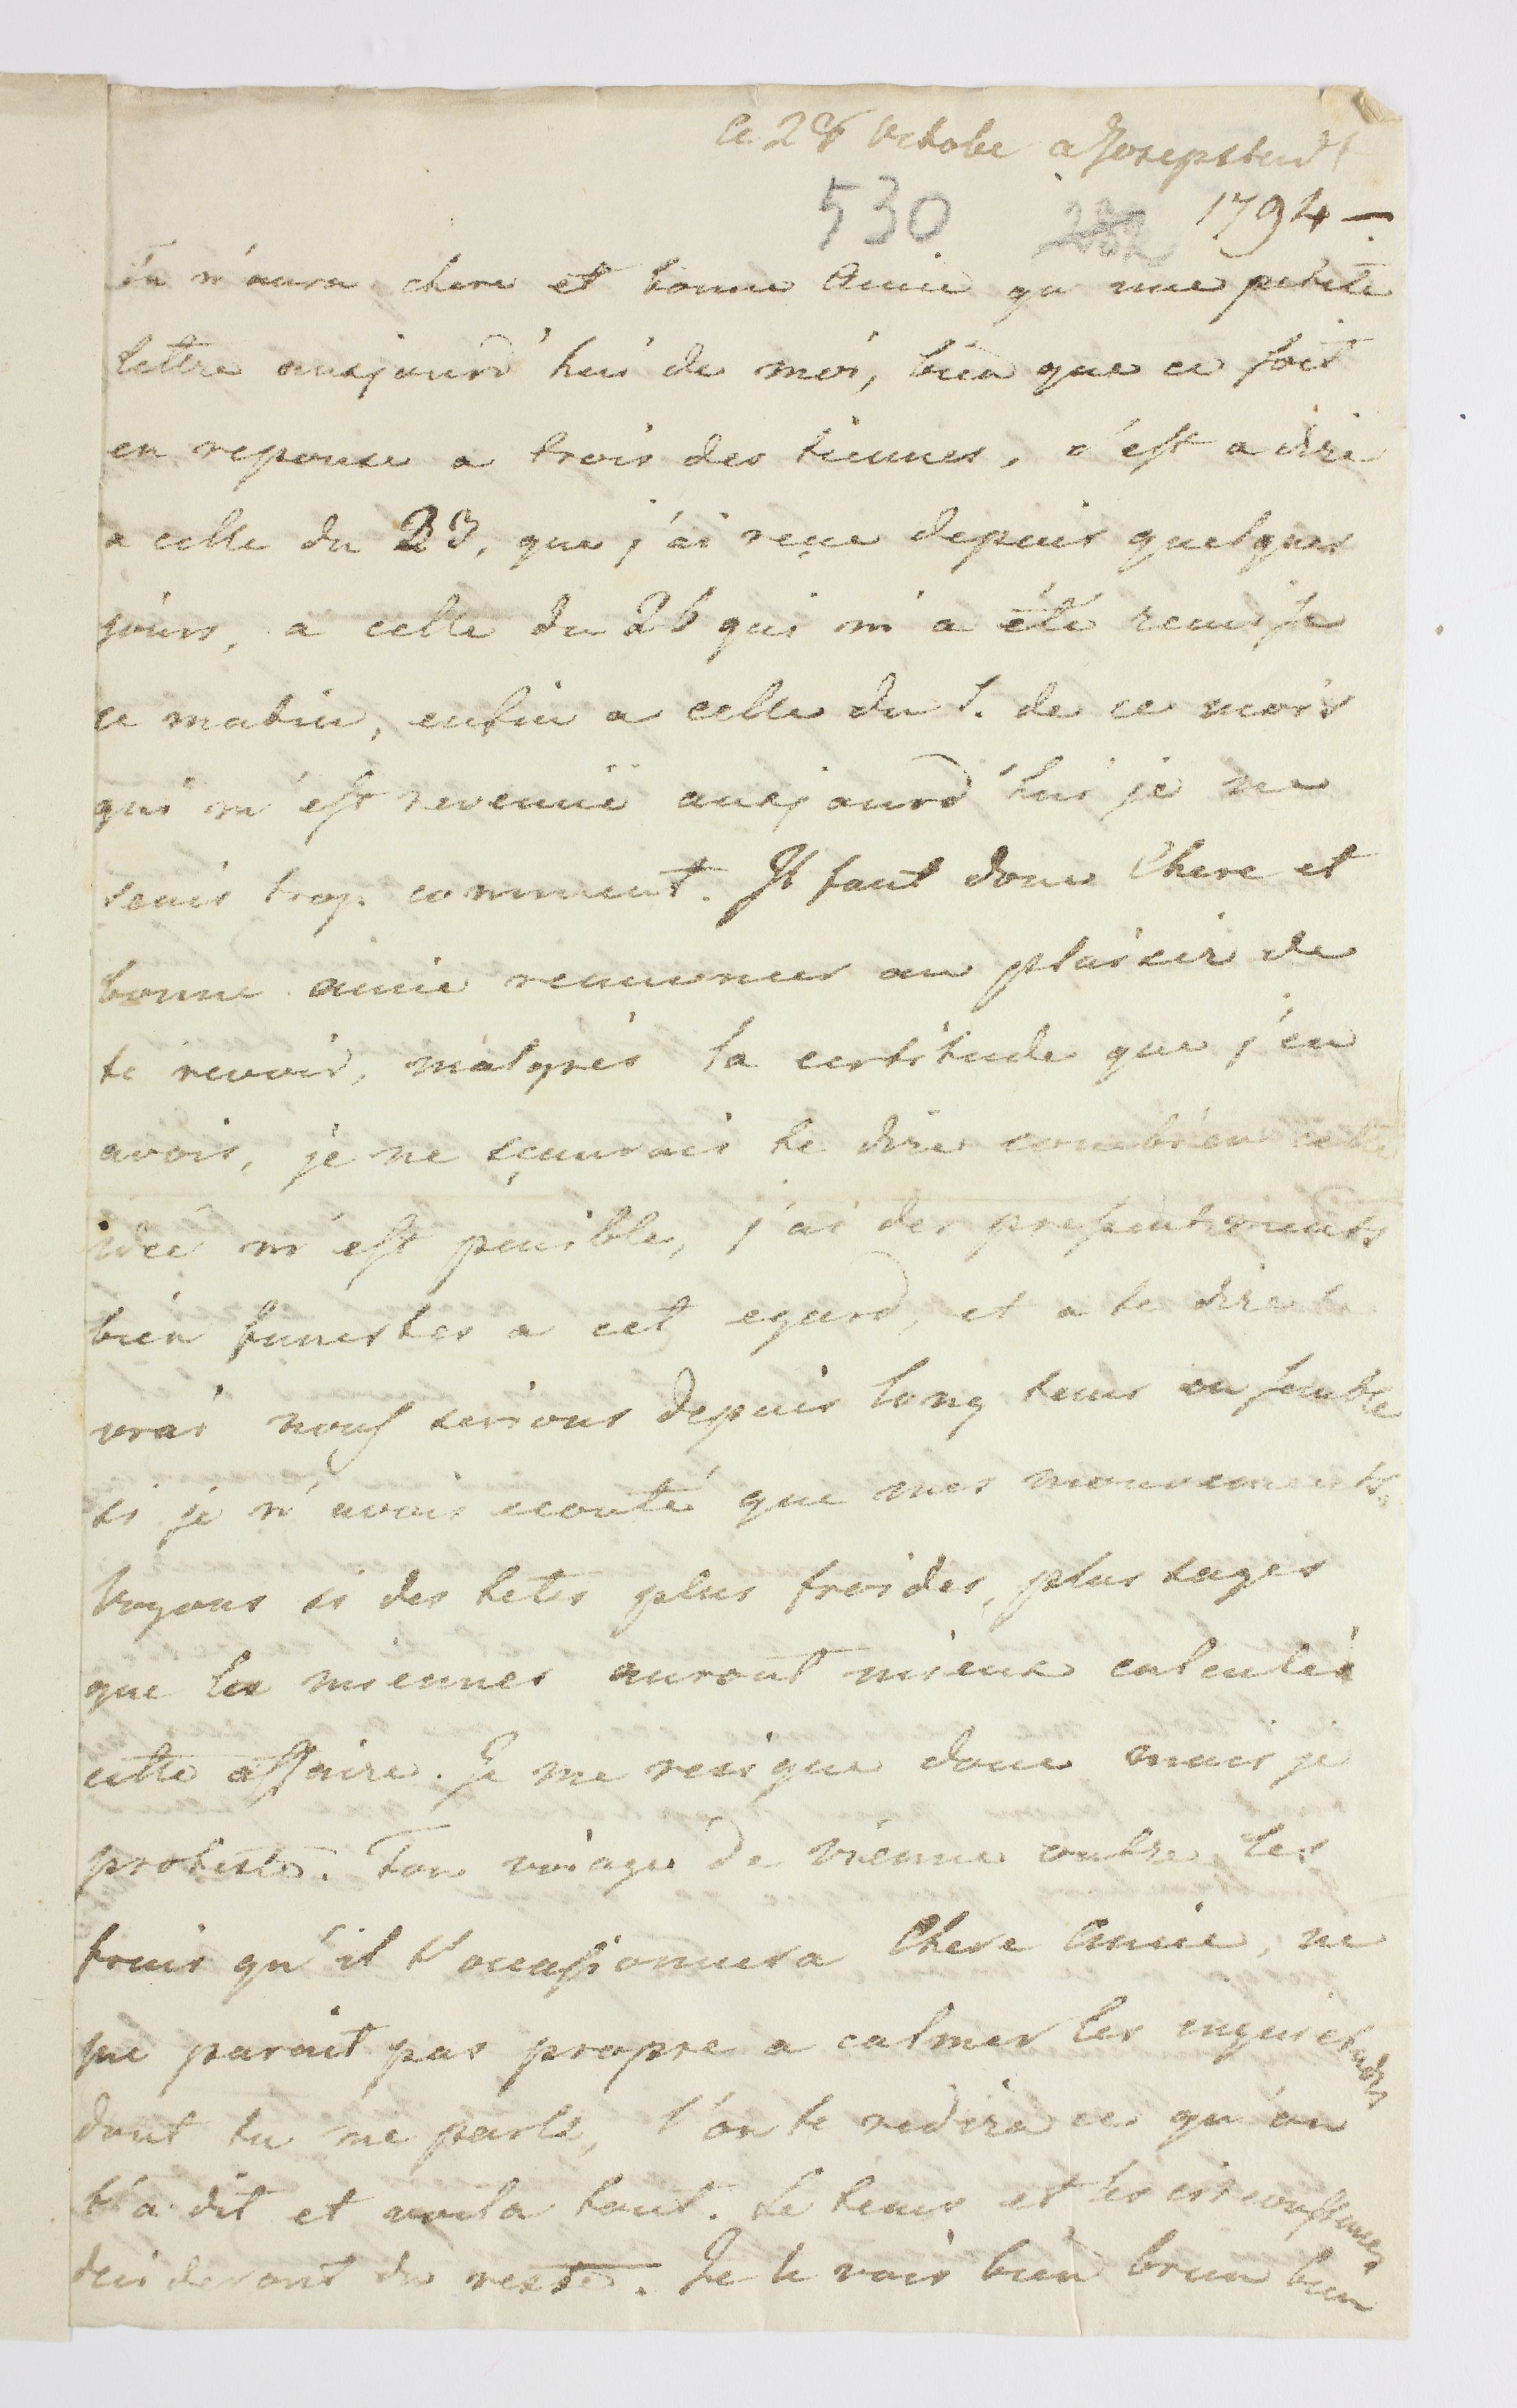 Ce 28 Octobe a Josepstadt
530 1794 –
tu n'aura chere et bonne Amie qu une petite
lettre aujourd'hui de moi, bien que ce soit
en reponse a trois des tiennes, c'est a dire
a celle du 23, que j'ai reçue depuis quelques
jours, a celle du 26 qui m'a été remise
ce matin, enfin a celle du 1. de ce mois
qui m'est revenuë aujourd'hui je ne
scais trop comment. Il faut donc Chere et
bonne amie renoncer au plaisir de
te revoir, malgrés la certitude que j'en
avois, je ne sçaurais te dire combien cette
idée m'est penible, j'ai des pressentiments
bien funestes a cet egard, et a te dire le
vrai nous serions depuis long tems ensemble
si je n'avais ecouté que mes mouvements,
Voyons si des tetes plus froides, plus sages
que les miennes auront mieux calculés
cette affaire. Je me resigne donc mais je
proteste. Ton voiage de vienne outre les
frais qu'il t'occassionnera Chere Amie, ne
me parait pas propre a calmer les inquietudes
dont tu me parle, l'on te redira ce qu'on
t'a dit et voila tout. Le tems et les circonstances
decideront du reste. Je le vois bien brun bien